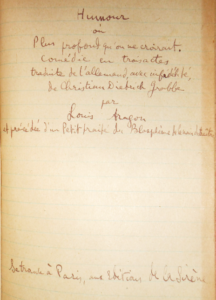 Humour
ou
Plus profond qu'on ne croirait.
Comédie en trois actes
traduite de l'allemand, avec infidélité,
de Christian Dietrich Grabbe
par
Louis Aragon
et précédée d'un Petit traité des
Se trouve à Paris, aux Editions de la Sirène